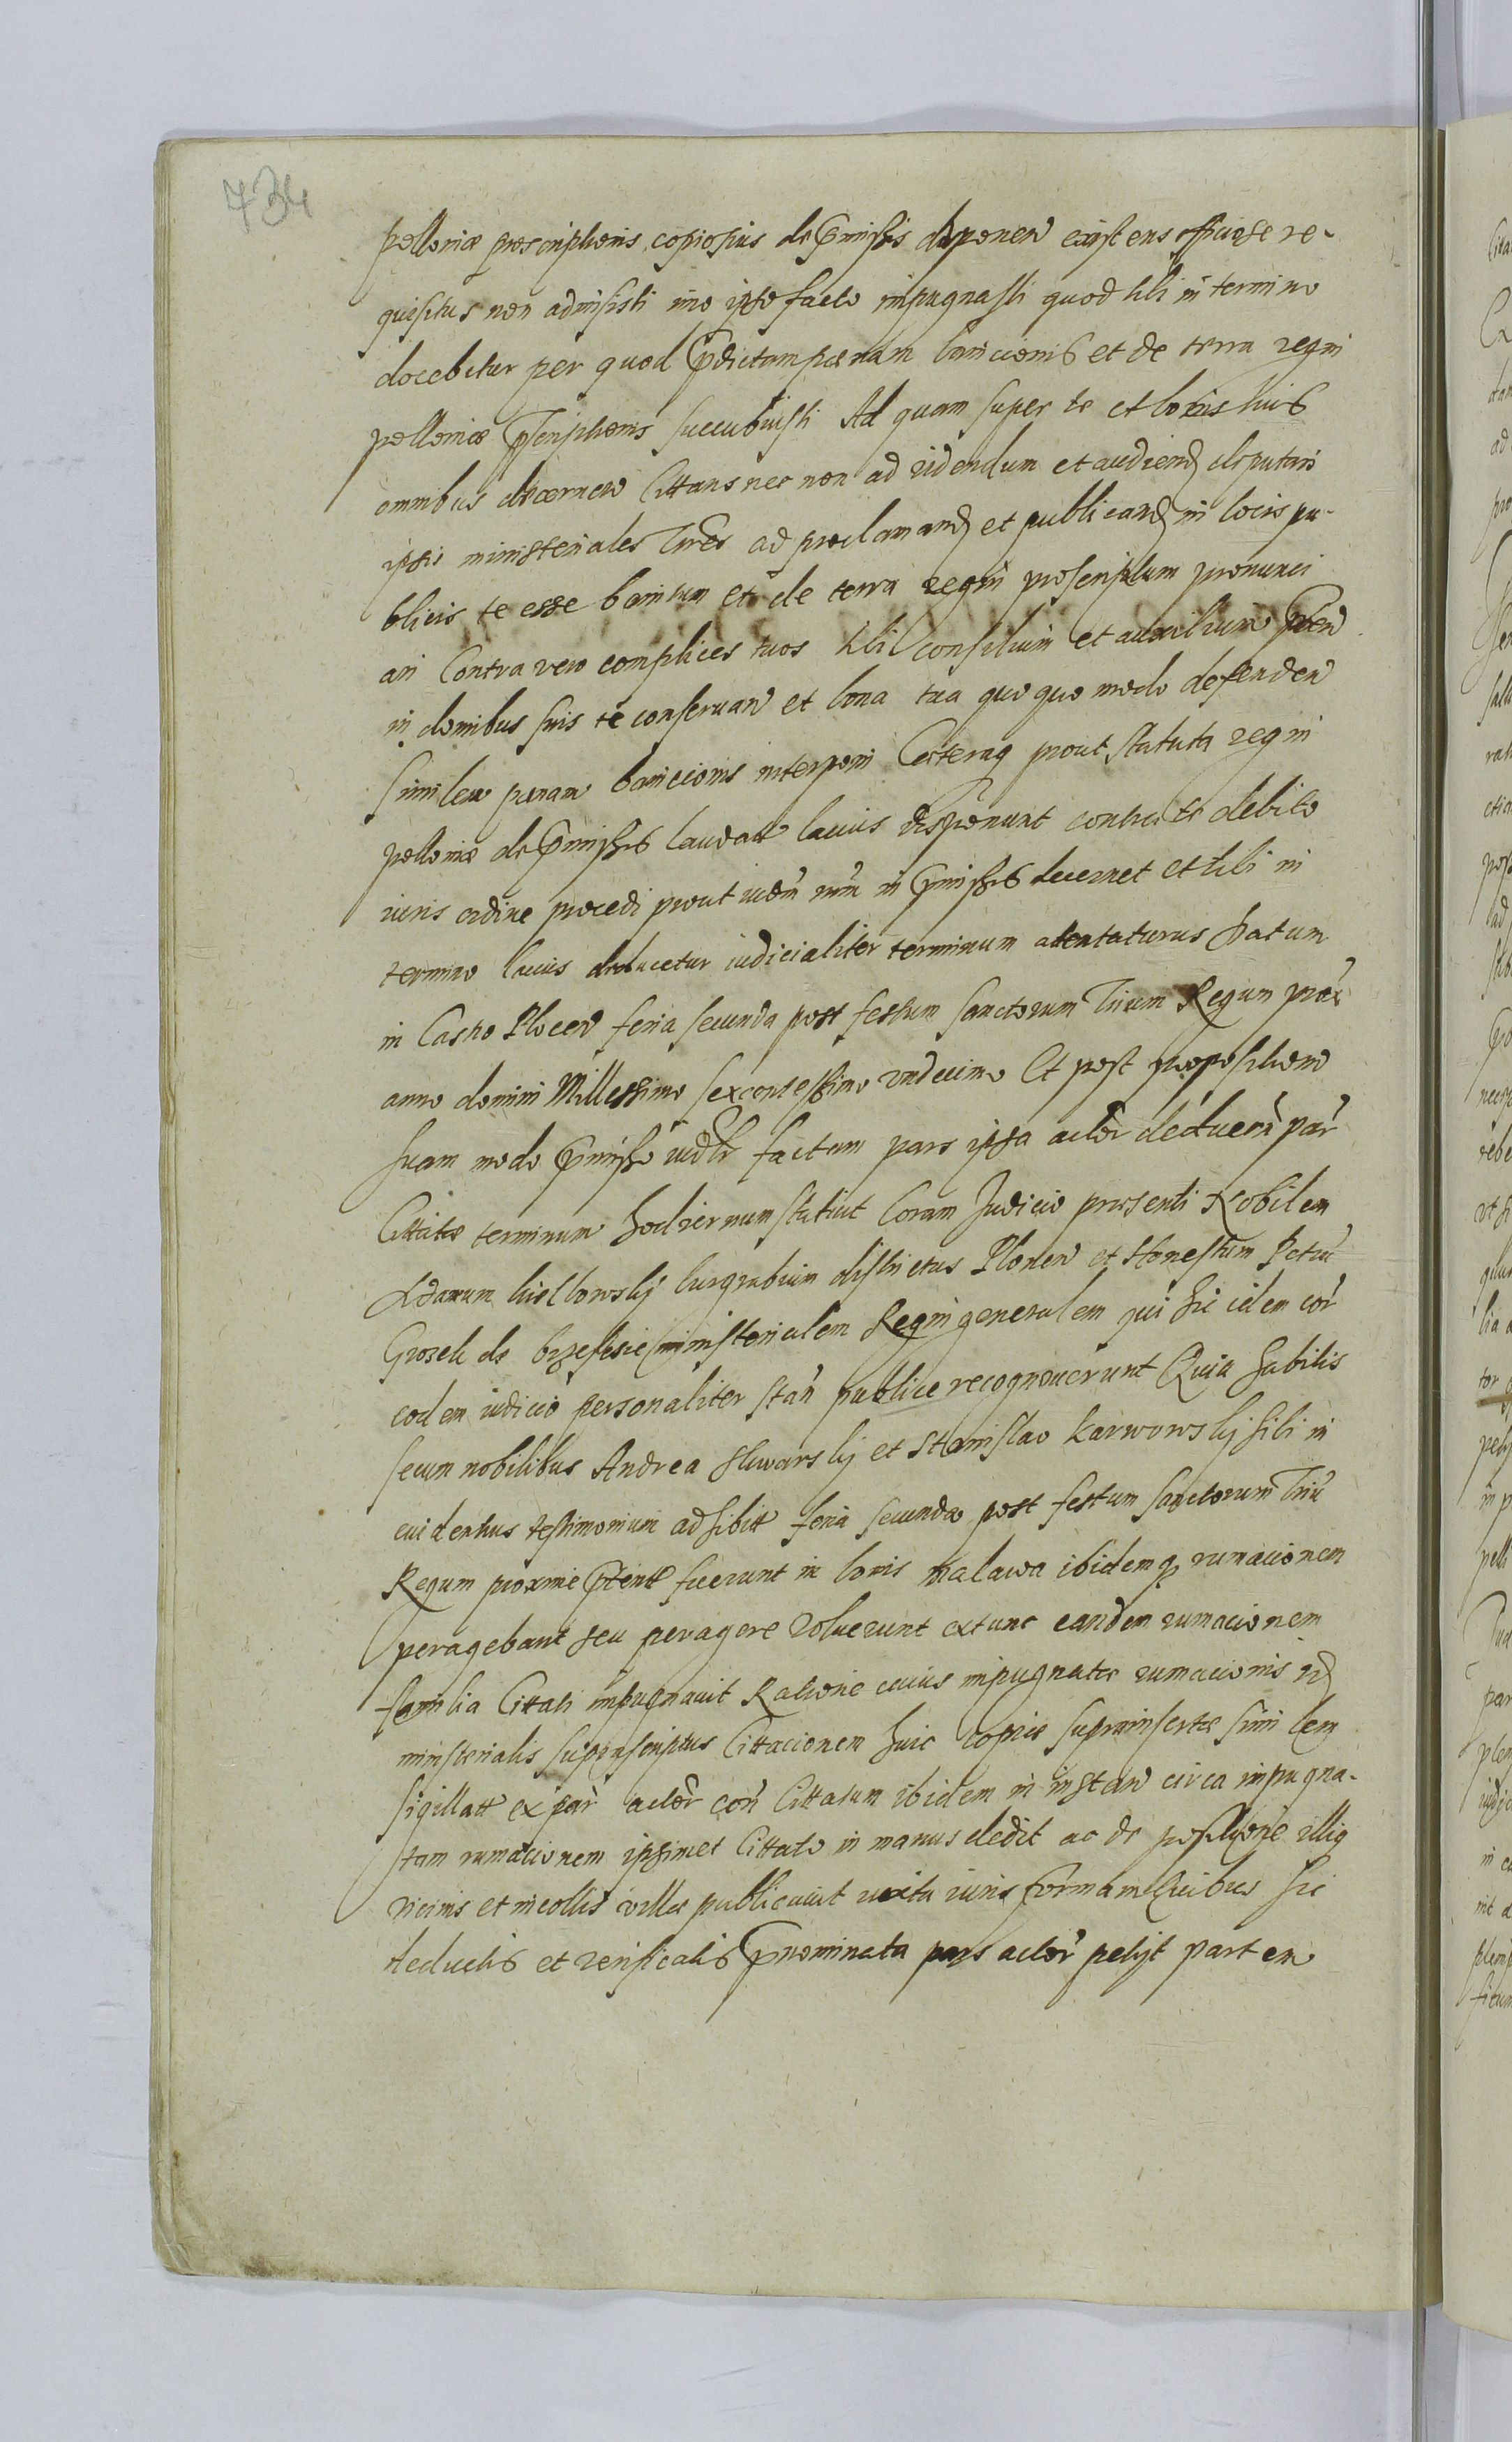 734
polloniæ proscriptionis copiosius de p̃missis disponeñ existens officiose re-
quisitus non admisisti imo ipso facto impugnasti quod tibi in termino
docebitur per quod p̃dictam pœnam banicionis et de terra regni
polloniæ p̃scriptionis succubuisti Ad quam super te et bonis tuis
omnibus decerneñ Cittans nec non ad videndum et audiend deputari
ipsis ministeriales Tres ad proclamand et publicand in locis pu-
blicis te esse banitum et de terra regni proscriptum pronunci
ari Contra vero complices tuos tibi consilium et auxilium
in domibus suis te conseruañ et bona tua quo quo modo defendeñ
similem pœnam banicionis interponi Cæteraq prout statuta regni
polloniæ de p̃missis laudatt lacius disponunt contra te debito
iuris ordine procedi prout iudm̃ nrm̃ in p̃missis decernet et tibi in
termino lacius deducetur iudicialiter terminum atentaturus Datum
in Castro Ploceñ feria secunda post festum sanctorum Trium Regum prox̃
anno domini Millessimo sexcentessimo vndecimo Et post propositione
suam modo p̃misso iudtr factam pars ipsa actor̃ deducen̄ par̃
Cittatæ terminum hodiernum statuit Coram Judicio præsenti Nobilem
Adamum burgrabium districtus Ploneñ et Honestum Petrũ
Grosek de ministerialem Regni generalem qui hic idem cor̃
eodem iudicio personaliter stañ publice recognouerunt Quia habitis
secum nobilibus Andrea et Stanislao Karwowskij sibi in
euidentius testimonium adhibitt feria secunda post festum sanctorum Triũ
Regum proxime p̃terit fuerunt in bonis malawa ibidemq rumacionem
peragebant seu peragere voluerunt extunc eandem rumacionem
familia Cittati impugnauit Ratione cuius impugnatæ rumacionis id
ministerialis suprascriptus Cittacionem huic copiæ suprainsertæ similem
sigillatt ex par̃ actor̃ con̄ Cittatum ibidem in instan̄ circa impugna-
tam rumacionem ipsimet Cittato in manus dedit ac de posilione illiq
vicinis et incollis villæ publicauit iuxta iuris formam Quibus sic
deductis et verificatis p̃nominata pars actor̃ petijt partem